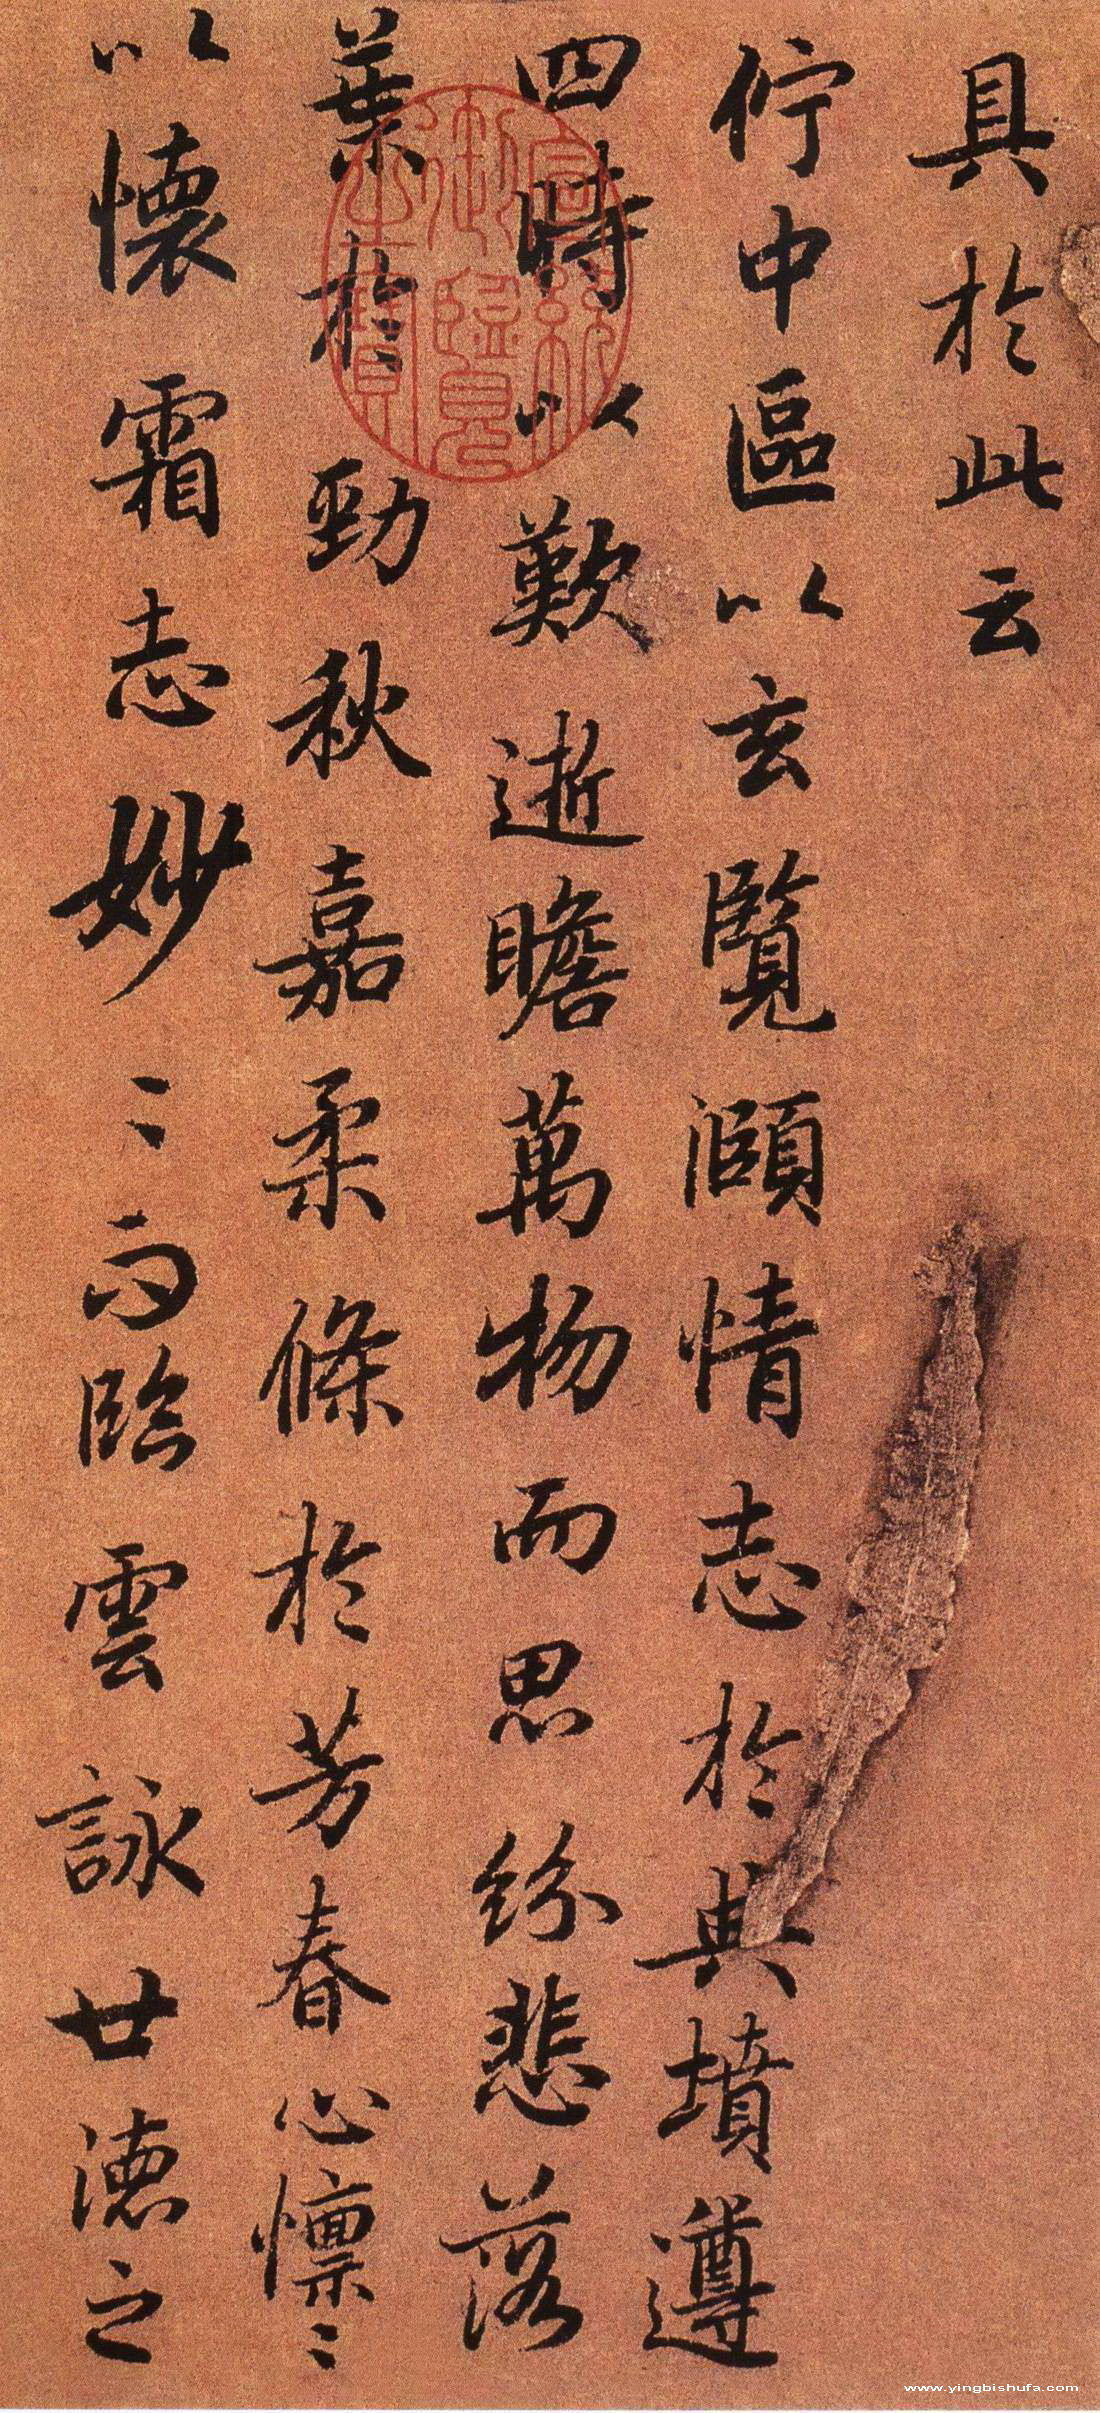 具於此云
佇中區以玄覽頤情志於典墳遵
四時以歎逝瞻萬物而思紛悲落
葉於勁秋嘉柔條於芳春心懍〻
以懷霜志妙〻而臨雲詠廿德之
宣統
御覽
之寶
www.yingbishufa.com